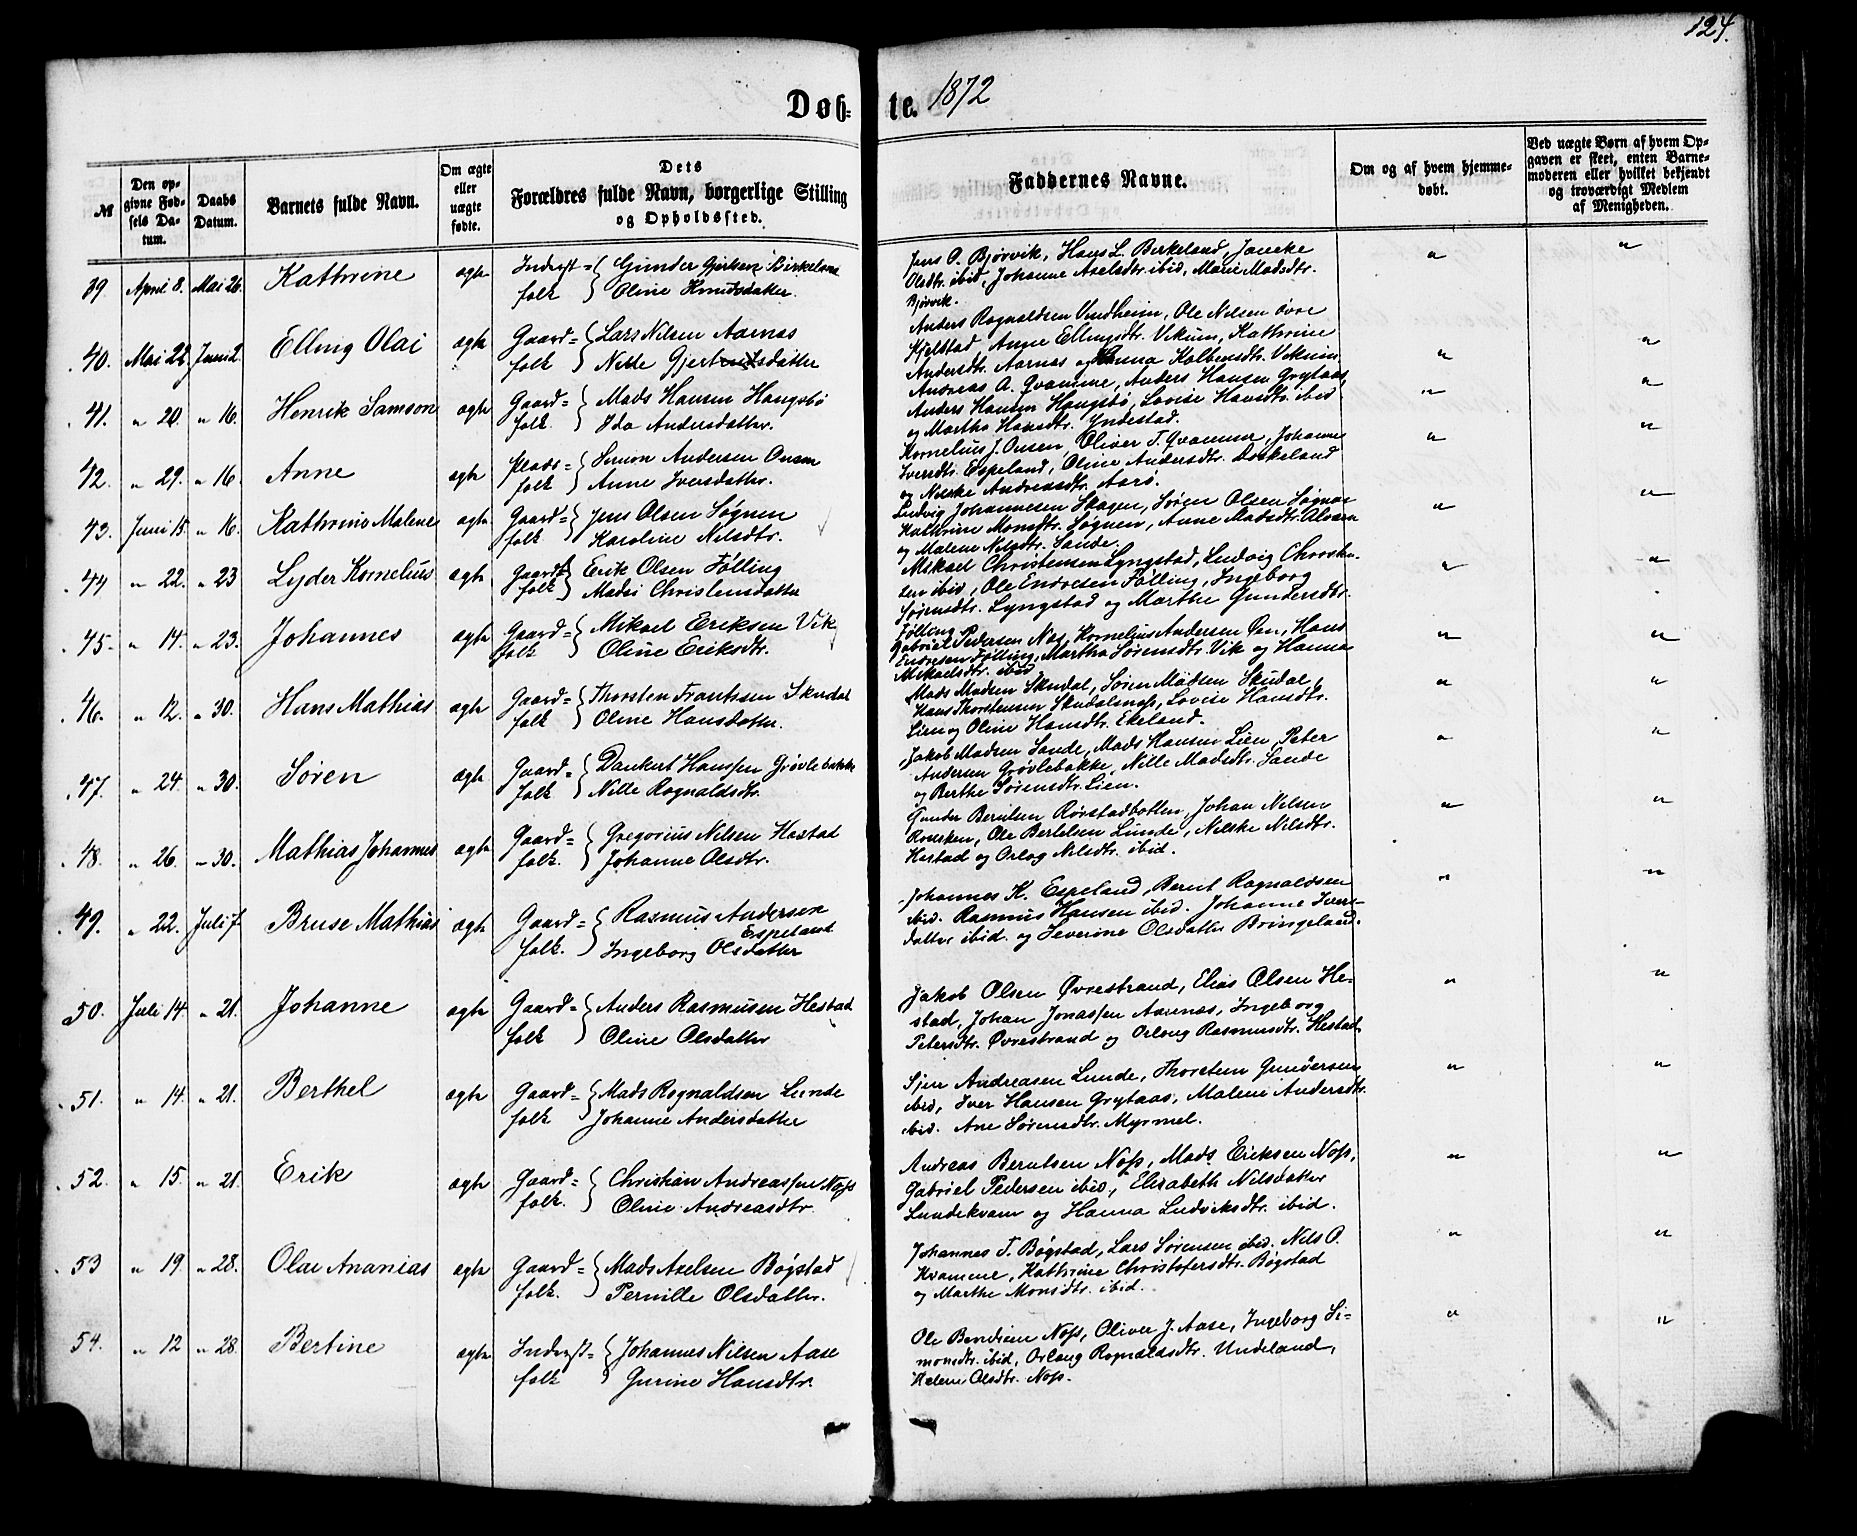 124.
Døb= te. 1872
№
Den op-
givne Fød-
sels Da-
tum.
Daabs
Datum.
Barnets fulde Navn.
Om ægte
eller
uægte
fødte.
Dets
Forældres fulde Navn, borgerlige Stilling
og Opholdssted.
Faddernes Navne.
Om og af hvem hjemme-
døbt.
Ved uægte Børn af hvem Op-
gaven er skeet, enten Barne-
moderen eller hvilket bekjendt
og troværdigt Medlem
af Menigheden.
39. April 8. Mai 26. Kathrine ægte Inderst= Gunder Gjertsen Birkeland
folk Oline Knudsdatter.
Jens O. Bjørvik, Hans L. Birkeland, Janeke
Olsdtr. ibid, Johanne Axelsdtr. ibid, Marie Madsdtr.
Bjørvik.
40. Mai 22. Juni 2. Elling Olai ægte Gaard= Lars Nilsen Aarnæs
folk Nille Gjertsdatter
Anders Rognaldsen Vindheim, Ole Nilsen övre
Hjelstad Anne Ellingsdtr. Vikum, Kathrine
Andersdtr. Aarnæs og Anna Kolbensdtr. Vikum.
41. " 20. " 16. Henrik Samson ægte Gaard= Mads Hansen Hougsbø
folk. Ida Andersdatter.
Andreas A. Qvamme, Anders Hansen Grytaas,
Anders Hansen Hougsbø, Lovise Hansdtr. ibid
og Martha Hansdtr. Yndestad.
42. " 29. " 16. Anne ægte Plads= Simon Andersen Onsen
folk Anne Iversdatter.
Kornelius J. Onsen, Oliver T. Qvamme, Johanne
Iversdtr. Espeland, Oline Andersdtr. Dokeland
og Nilske Andreasdtr. Aarø.
43. Juni 15. " 16. Kathrine Malene ægte Gaard= Jens Olsen Søgnen
folk Karoline Nilsdtr.
Ludvig Johannesen Skagen, Søren Olsen Søgnen
Kathrine Monsdtr. Søgnen, Anne Madsdtr. Alvsen
og Malene Nilsdtr. Sande.
44 " 22. " 23 Lyder Kornelius ægte Gaard= Erik Olsen Følling
folk Madsi Christensdatter
Mikael Christensen Lyngstad, Ludvig Christen-
sen ibid, Ole Endresen Følling, Ingeborg
Sørensdtr. Lyngstad og Marthe Gundersdtr.
Følling
45. " 14. " 23. Johannes ægte Gaard= Mikael Eriksen Vik
folk Oline Eriksdtr.
Gabriel Pedersen Nos, Kornelius Andersen Øen, Hans
Endresen Følling, Martha Sørensdtr. Vik og Hanna
Mikaelsdtr. ibid
46. " 12. " 30. Hans Mathias ægte Gaard= Thorsten Frantssen Skudal
folk Oline Hansdatter.
Mads Madsen Skudal, Søren Madsen Skudal,
Hans Thorstensen Skudalsnæs, Lovise Hansdtr.
Lien og Oline Hansdtr. Ekeland.
47. " 24. " 30. Søren ægte Gaard= Dankert Hanssen Grøvlebakke
folk. Nille Rognaldsdtr.
Jakob Madsen Sande, Mads Hansen Lien, Peter
Andersen Grøvlebakke, Nille Madsdtr. Sande
og Berthe Sørensdtr. Lien.
48. " 26. " 30. Mathias Johannes ægte Gaard= Gregorius Nilsen Hestad
folk. Johanne Olsdtr.
Gunder Berntsen Rørstadbotten, Johan Nilsen
Roesken, Ole Bertelsen Lunde, Nilske Nilsdtr.
Hestad og Orlog Nilsdtr. ibid.
49. " 22. Juli 7. Bruse Mathias ægte Gaard= Rasmus Andersen
Espeland
folk. Ingeborg Olsdatter
Johannes K. Espeland, Bernt Rognaldsen
ibid. Rasmus Hansen ibid. Johanne Ivers-
datter ibid. og Severine Olsdatter Bringeland.
50. Juli 14. " 21. Johanne ægte Gaard= Anders Rasmusen Hestad
folk Oline Olsdatter
Jakob Olsen Øvrestrand, Elias Olsen He-
stad, Johan Jonassen Aarnæs, Ingeborg
Petersdtr. Øvrestrand og Orloug Rasmusdtr. Hestad
51. " 14. " 21. Berthel ægte Gaard= Mads Rognaldsen Lunde
folk. Johanne Andersdatter
Sjur Andreasen Lunde, Thorsten Gundersen
ibid, Iver Hansen Grytaas, Malene Andersdtr.
ibid. Ane Sørensdtr. Myrmel.
52. " 15. " 21. Erik ægte Gaard= Christian Andreassen Noss
folk. Oline Andreasdtr.
Andreas Berntsen Noss, Mads Eriksen Noss,
Gabriel Pedersen ibid, Elisabeth Nilsdatter
Lundekvam og Hanna Ludviksdtr. ibid.
53 " 19. " 28. Olai Ananias ægte Gaard= Mads Axelsen Bøgstad
folk. Pernille Olsdatter.
Johannes T. Bøgstad, Lars Sørensen ibid. Nils P.
Kvamme, Kathrine Christofersdtr. Bøgstad
og Marthe Monsdtr. ibid.
54. " 12 " 28. Bertine ægte Inderst= Johannes Nilsen Aase
folk Gurine Hansdtr.
Ole Bendixen Noss, Oliver J. Aase, Ingeborg Si-
monsdtr. ibid, Orloug Rognaldsdtr. Undeland,
Helene Olsdtr. Noss.